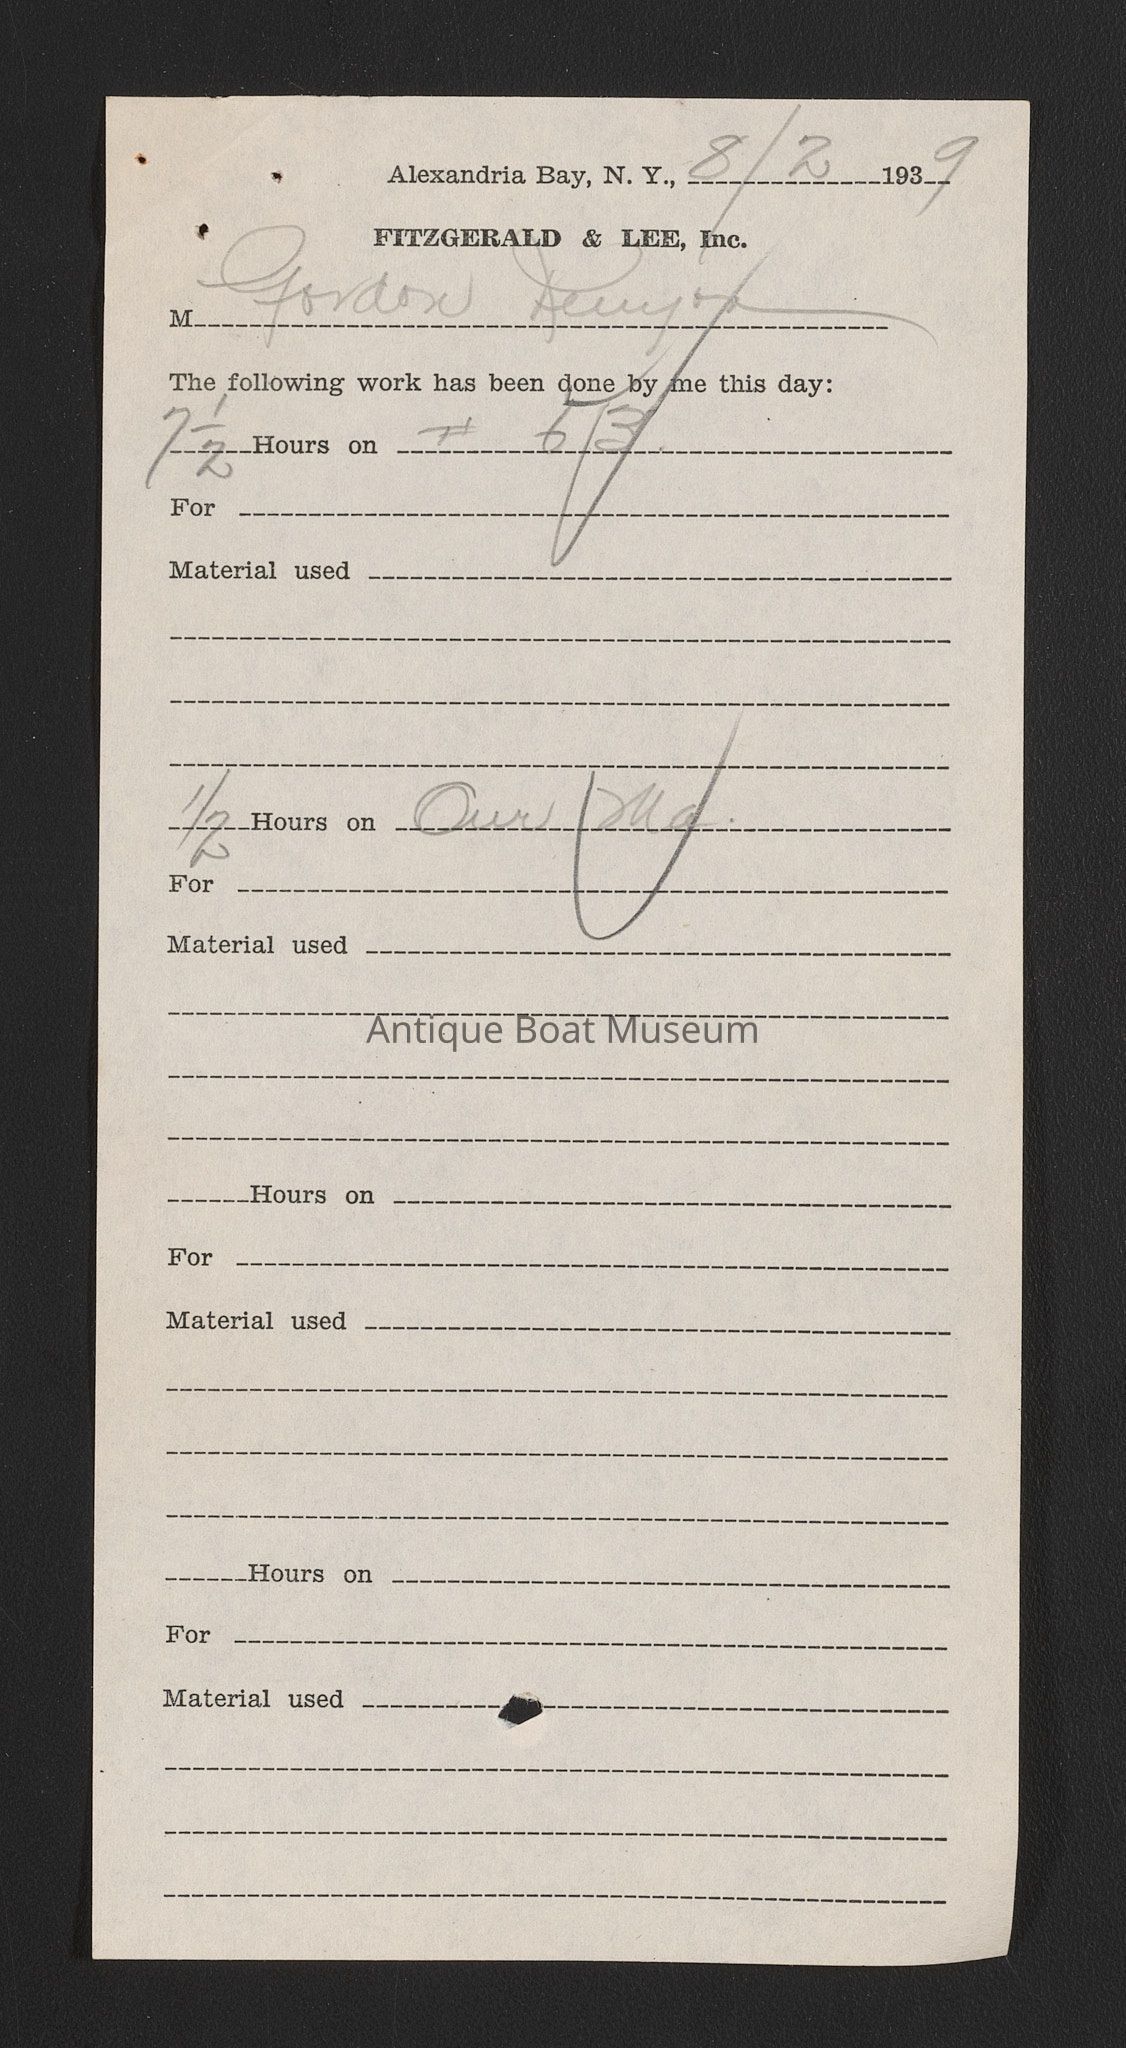 Alexandria Bay, N. Y., 8/2 1939
FITZGERALD & LEE, Inc.
M Gordon Kenyon
The following work has been done by me this day:
7 1/2 Hours on #
For
Material used
1/2 Hours on Our
For
Material used
Antique Boat Museum
Hours on
For
Material used
Hours on
For
Material used